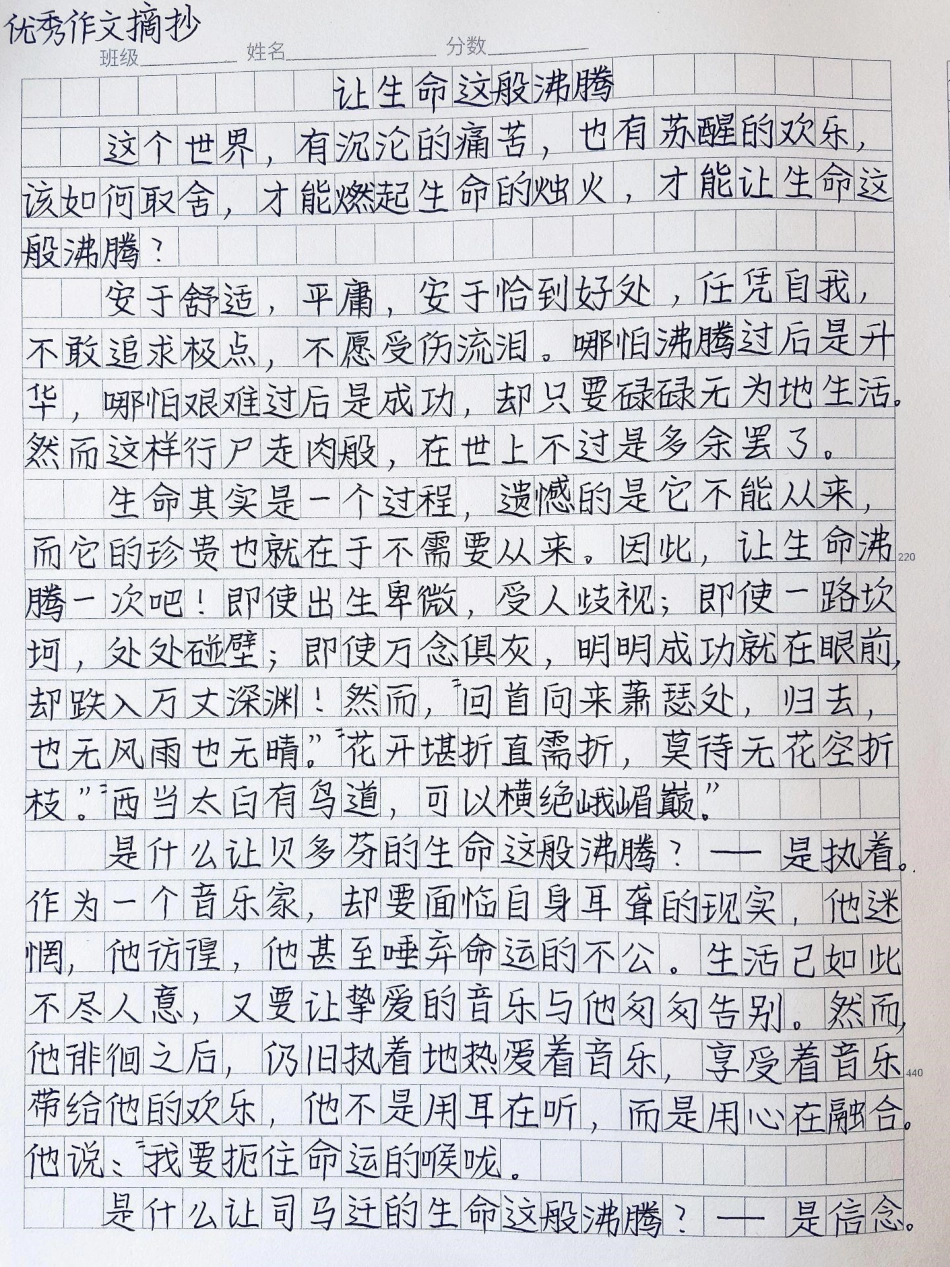 优秀作文摘抄
班级 姓名 分数
让生命这般沸腾
这个世界，有沉沦的痛苦，也有苏醒的欢乐，
该如何取舍，才能燃起生命的烛火，才能让生命这
般沸腾？
安于舒适，平庸，安于恰到好处，任凭自我，
不敢追求极点，不愿受伤流泪。哪怕沸腾过后是升
华，哪怕艰难过后是成功，却只要碌碌无为地生活。
然而这样行尸走肉般，在世上不过是多余罢了。
生命其实是一个过程，遗憾的是它不能从来，
而它的珍贵也就在于不需要从来。因此，让生命沸
220
腾一次吧！即使出生卑微，受人歧视；即使一路坎
坷，处处碰壁；即使万念俱灰，明明成功就在眼前，
却跌入万丈深渊！然而，“回首向来萧瑟处，归去，
也无风雨也无晴”“花开堪折直需折，莫待无花空折
枝”。“西当太白有鸟道，可以横绝峨嵋巅”。
是什么让贝多芬的生命这般沸腾？——是执着。
作为一个音乐家，却要面临自身耳聋的现实，他迷
惘，他彷徨，他甚至唾弃命运的不公。生活已如此
不尽人意，又要让挚爱的音乐与他匆匆告别。然而，
他徘徊之后，仍旧执着地热爱着音乐，享受着音乐
440
带给他的欢乐，他不是用耳在听，而是用心在融合。
他说：“我要扼住命运的喉咙。
是什么让司马迁的生命这般沸腾？——是信念。